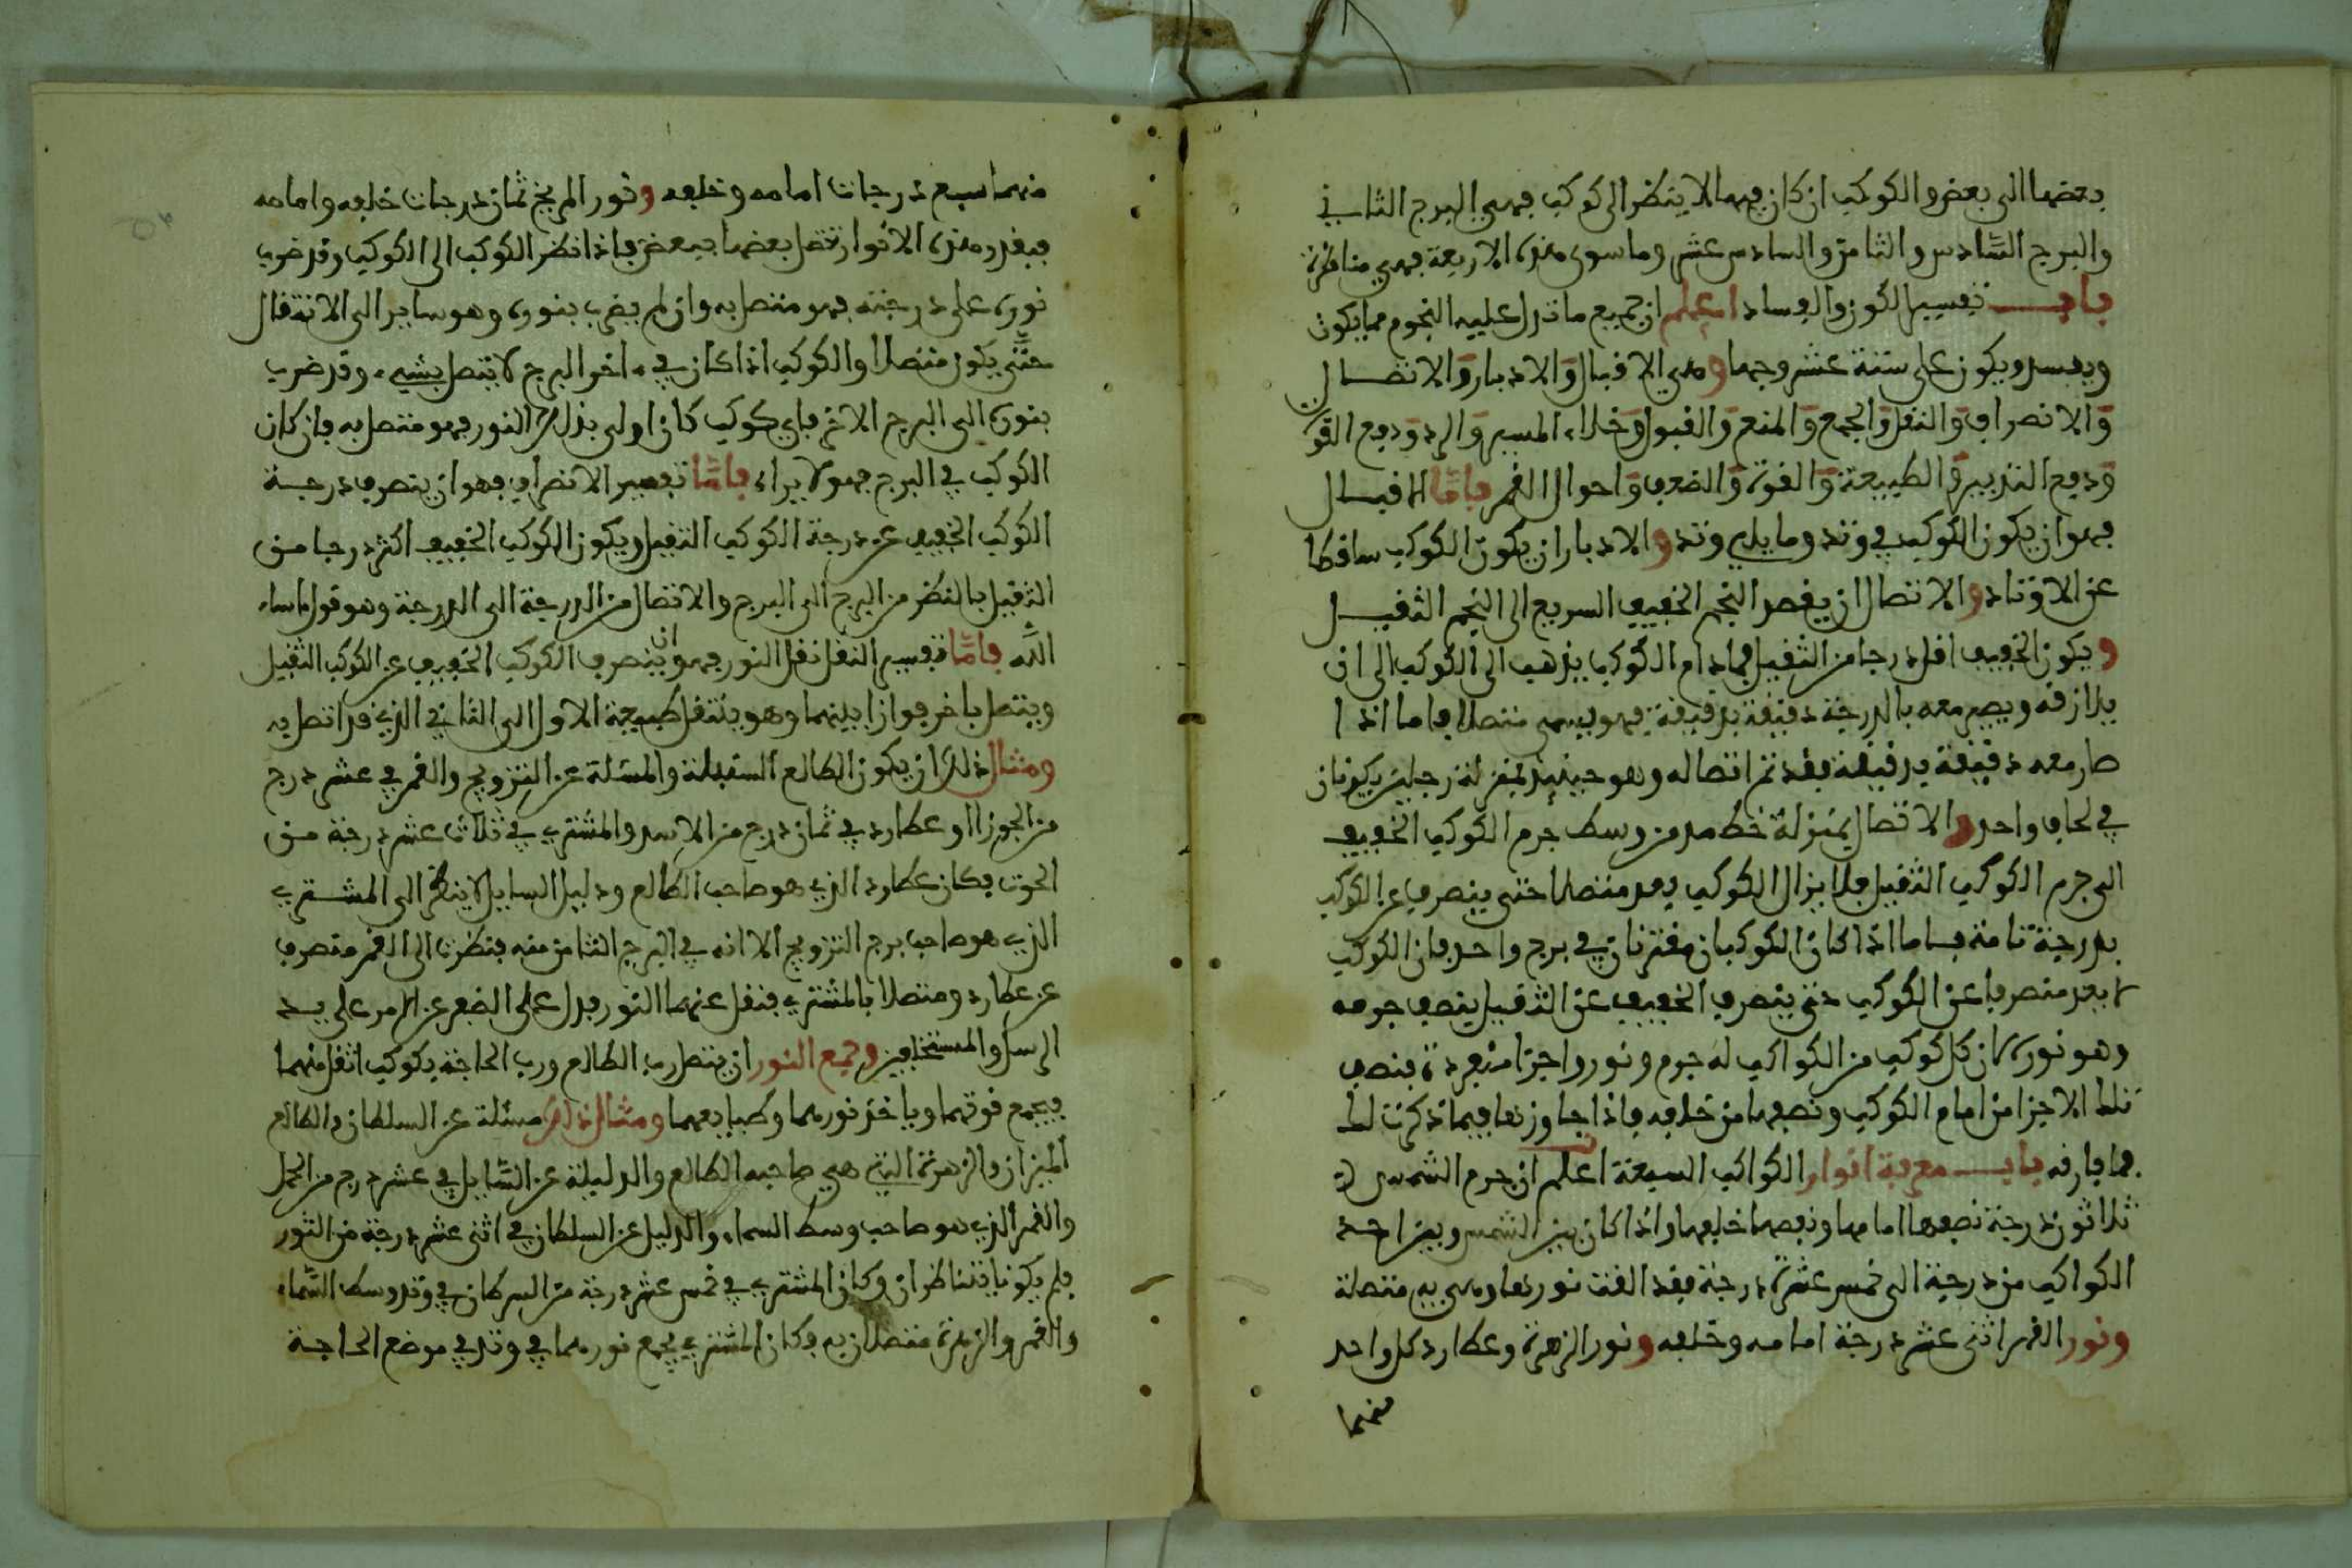 بعضها الى بعض والكوكب ان كان فيهما لا ينظر الى كوكب فهي البرج الثاني
والبرج السادس والثامن والسادس عشر وما سوى هذه الاربعة فهي مناظرة
باب تفسير الكون والفساد اعلم ان جميع ما تدل عليه النجوم مما يكون
ويفسد ويكون على ستة عشر وجها وهي الاقبال والادبار والاتصال
والانصراف والنقل والجمع والمنع والقبول وخلاء المسير والرد ودفع القوة
ودفع التدبير والطبيعة والقوة والضعف واحوال القمر فاما الاقبال
فهو ان يكون الكوكب في وتد وما يلي وتد والادبار ان يكون الكوكب ساقطا
عن الاوتاد والاتصال ان يقصد النجم الخفيف السريع الى النجم الثقيل
ويكون الخفيف اقل درجا من الثقيل فما دام الكوكب يذهب الى الكوكب الى ان
يلازقه ويصير معه بالدرجة دقيقة بدقيقة فهو يسمى متصلا فاما اذا
صار معه دقيقة بدقيقة فقد تم اتصاله وهو حينئذ بمنزلة رجلين يكونان
في لحاف واحد والاتصال بمنزلة خط مد من وسط جرم الكوكب الخفيف
الى جرم الكوكب الثقيل فلا يزال الكوكب يعد متصلا حتى ينصرف عن الكوكب
بدرجة تامة فاما اذا كان الكوكبان مقترنان في برج واحد فان الكوكب
لا يعد منصرفا عن الكوكب حتى ينصرف الخفيف عن الثقيل بنصف جرمه
وهو نوره لان كل كوكب من الكواكب له جرم ونور واجزا منفردة فنصف
تلك الاجزا من امام الكوكب ونصفها من خلفه فاذا جاوزها فيما ذكرت لك
فما فارقه باب معرفة انوار الكواكب السبعة اعلم ان جرم الشمس
ثلاثون درجة نصفها امامها ونصفها خلفها واذا كان بين الشمس وبين احد
الكواكب من درجة الى خمس عشرة درجة فقد القت نورها وهي به متصلة
ونور القمر اثنى عشر درجة امامه وخلفه ونور الزهرة وعطارد كل واحد
منهما
منهما سبع درجات امامه وخلفه ونور المريخ ثمان درجات خلفه وامامه
فبقدر هذه الانوار تتصل بعضها ببعض فاذا نظر الكوكب الى الكوكب وقد ضرب
نوره على درجته فهو متصل به وان لم يضرب بنوره وهو ساير الى الانتقال
حتى يكون متصلا والكوكب اذا كان في اخر البرج لا يتصل بشيء وقد ضرب
بنوره الى البرج الاخر فاي كوكب كان اولى بذلك النور فهو متصل به فان كان
الكوكب في البرج فهو لا يراه فاما تفسير الانصراف فهو ان ينصرف درجة
الكوكب الخفيف عن درجة الكوكب الثقيل ويكون الكوكب الخفيف اكثر درجا من
الثقيل بالنظر من البرج الى البرج والاتصال من الدرجة الى الدرجة وهو قول ماساء
الله فاما تفسير النقل نقل النور فهو ان ينصرف الكوكب الخفيف عن الكوكب الثقيل
ويتصل باخر فوازا بينهما وهو ينتقل طبيعة الاول الى الثاني الذي قد اتصل به
ومثال ذلك ان يكون الطالع السنبلة والمسئلة عن التزويج والقمر في عشر درج
من الجوزا او عطارد في ثمان درج من الاسد والمشتري في ثلاث عشر درجة من
الحوت فكان عطارد الذي هو صاحب الطالع ودليل السايل لا ينظر الى المشتري
الذي هو صاحب برج التزويج الا انه في البرج الثامن منه فنظرت الى القمر منصرف
عن عطارد ومتصلا بالمشتري فنقل عنهما النور فدل على الضعر عن الامر على يد
الرسل والمستخلفين وجمع النور ان يتصل رب الطالع ورب الحاجة بكوكب اثقل منهما
فيجمع قوتهما وياخذ نورهما وطبايعهما ومثال ذلك مسئلة عن السلطان والطالع
الميزان والزهرة التي هي صاحبه الطالع والدليلة عن السايل في عشر درج من الحمل
والقمر الذي هو صاحب وسط السماء والدليل عن السلطان في اثنى عشر درجة من الثور
فلم يكونا يتناظران وكان المشتري في خمس عشر درجة من السرطان في وتد وسط السماء
والقمر والزهرة متصلان به فكان المشتري يجمع نورهما في وتد في موضع الحاجة